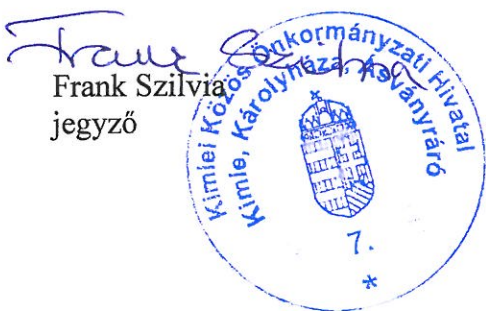 Frank Szilvia
Frank Szilvia
jegyző
Kimlei Közös Önkormányzati Hivatal
Kimle, Károlyháza, Ásványráró
7.
*